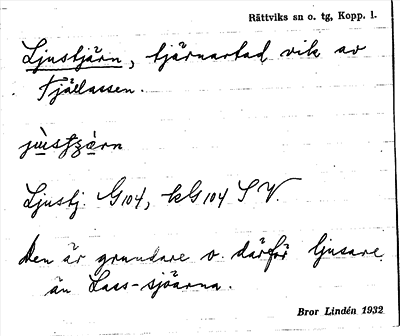 Rättviks sn o. tg, Kopp. l.
Ljustjärn, tjärnartad vik av
Tjällassen.
Ljustj. G104, kG104 SV.
Den är grundare o. därför ljusare
än Lass-sjöarna.
Bror Lindén 1932